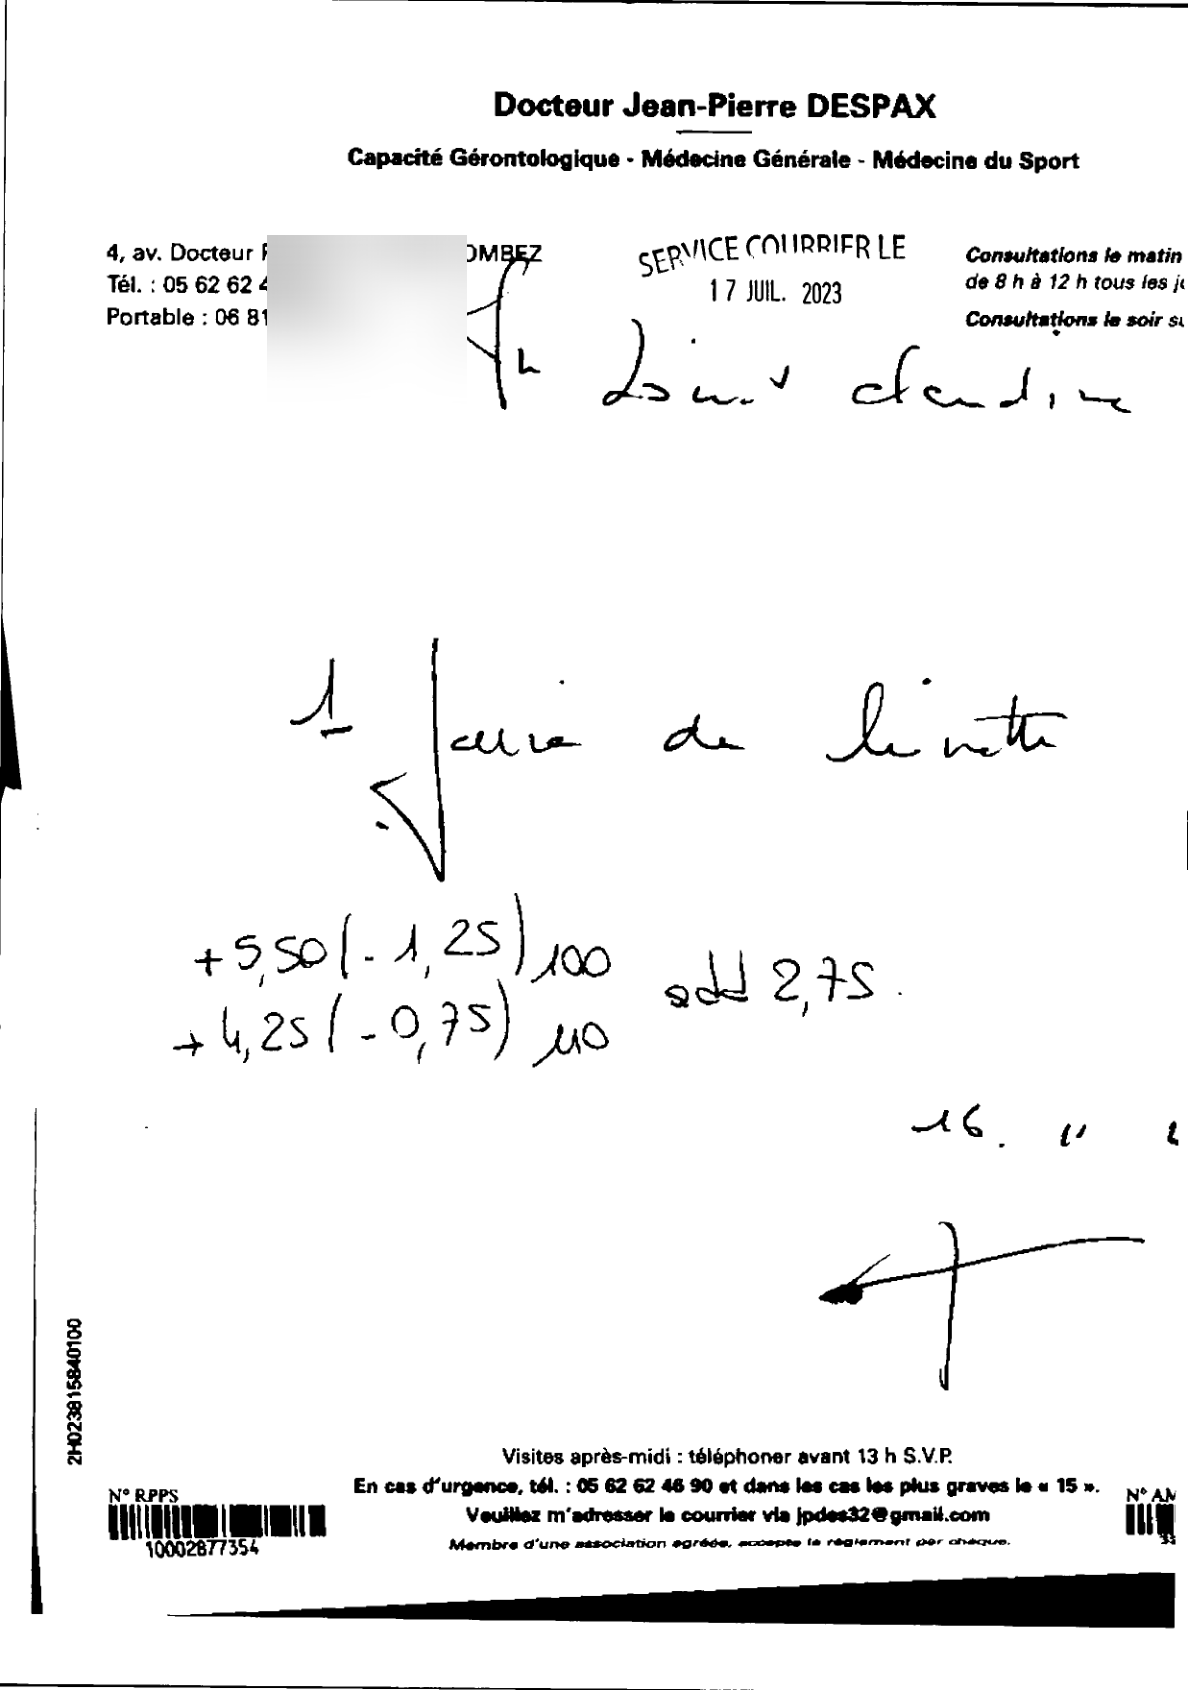 Docteur Jean-Pierre DESPAX
Capacité Gérontologique - Médecine Générale - Médecine du Sport
4, av. Docteur
OMBEZ
Tél. : 05 62 62 4
Portable : 06 81
SERVICE COURRIER LE
17 JUIL. 2023
Consultations le matin
de 8 h à 12 h tous les
Consultations le soir
1 paire de lunette
+5,50 (-1,25) 100 add 2,75
+4,25 (-0,75) 110
16.
2H023815840100
Visites après-midi : téléphoner avant 13 h S.V.P.
En cas d'urgence, tél. : 05 62 62 46 90 et dans les cas les plus graves le « 15 ».
Veuillez m'adresser le courrier via jpdes32@gmail.com
Membre d'une association agréée, accepte le règlement par chèque.
N° RPPS
10002877354
N° AM